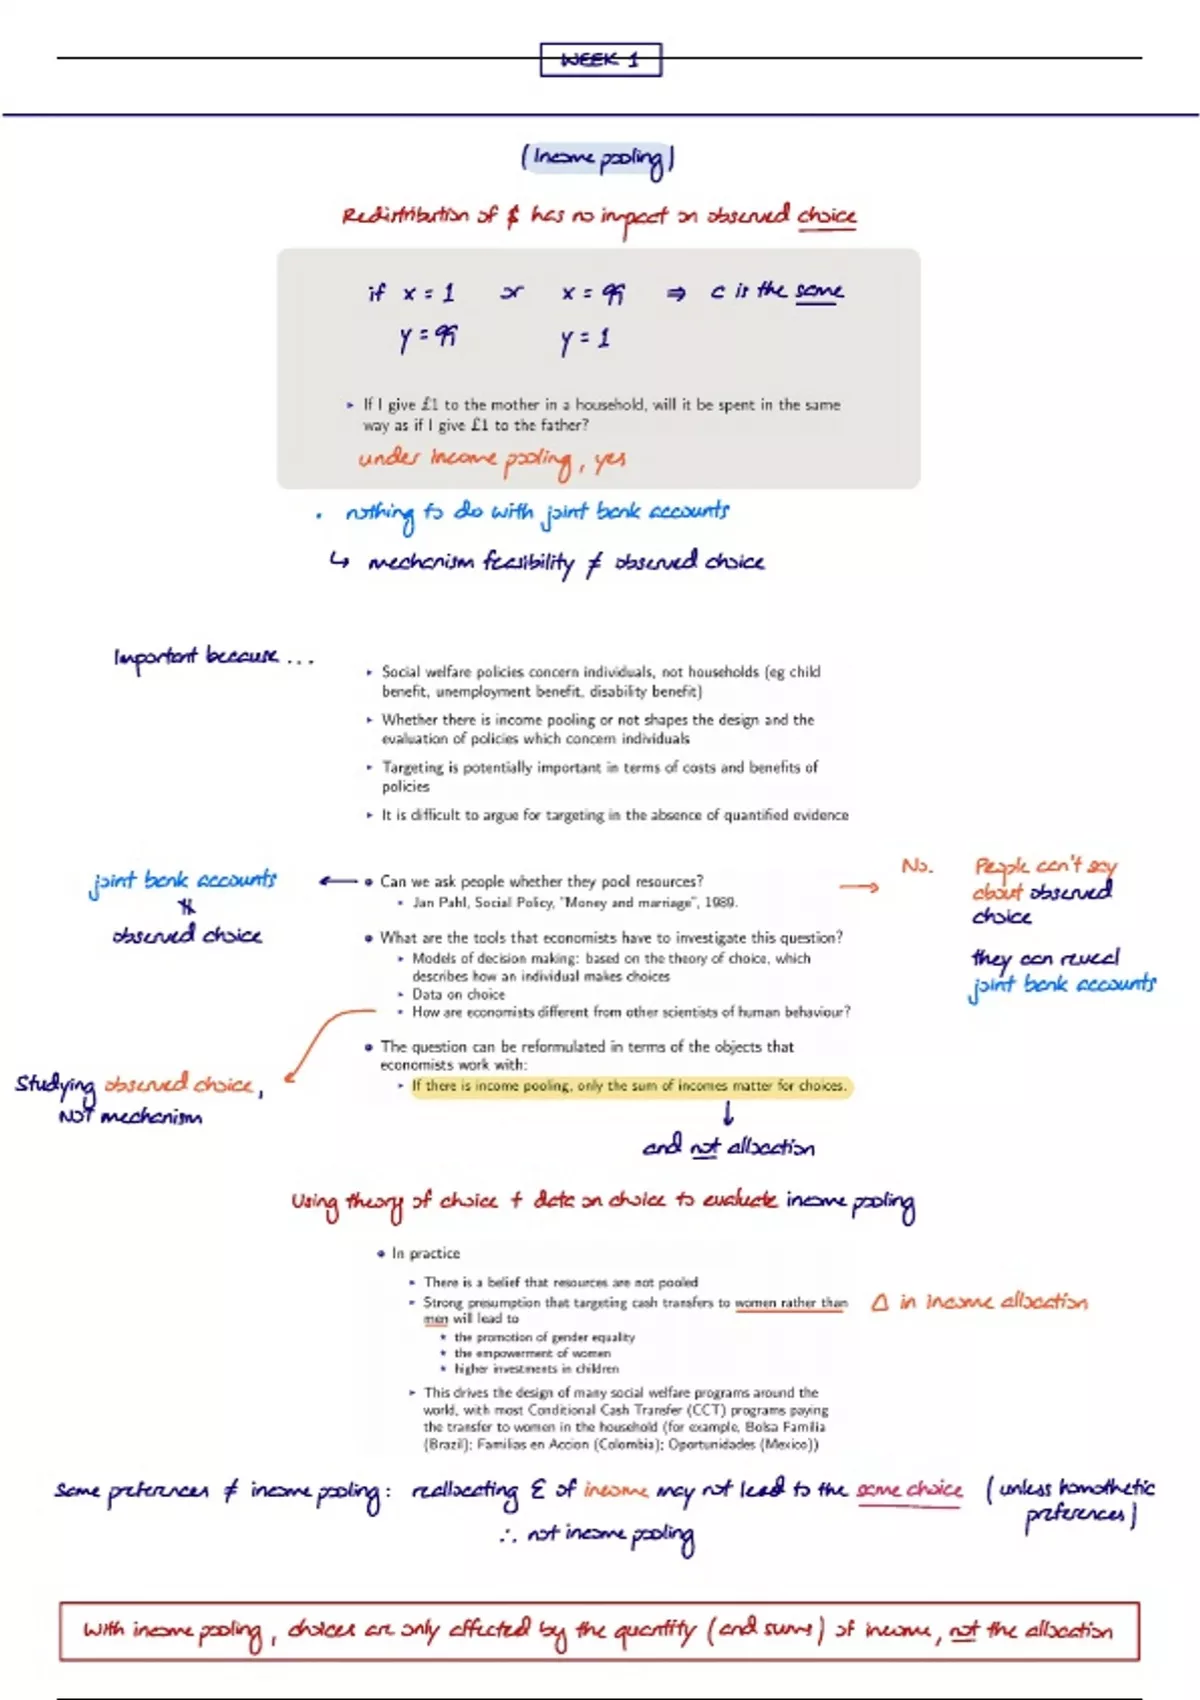 WEEK 1
(Income pooling)
Redistribution of $ has no impact on observed choice
if x = 1 or x = 99 ⇒ c is the same
y = 99 y = 1
If I give £1 to the mother in a household, will it be spent in the same
way as if I give £1 to the father?
under income pooling, yes
• nothing to do with joint bank accounts
↳ mechanism feasibility ≠ observed choice
Important because ...
Social welfare policies concern individuals, not households (eg child
benefit, unemployment benefit, disability benefit)
Whether there is income pooling or not shapes the design and the
evaluation of policies which concern individuals
Targeting is potentially important in terms of costs and benefits of
policies
It is difficult to argue for targeting in the absence of quantified evidence
joint bank accounts
≠
observed choice
Can we ask people whether they pool resources?
Jan Pahl, Social Policy, "Money and marriage", 1989.
No. People can't say
about observed
choice
they can reveal
joint bank accounts
What are the tools that economists have to investigate this question?
Models of decision making: based on the theory of choice, which
describes how an individual makes choices
Data on choice
How are economists different from other scientists of human behaviour?
Studying observed choice,
NOT mechanism
The question can be reformulated in terms of the objects that
economists work with:
If there is income pooling, only the sum of incomes matter for choices.
↓
and not allocation
Using theory of choice + data on choice to evaluate income pooling
In practice
There is a belief that resources are not pooled
Strong presumption that targeting cash transfers to women rather than
men will lead to
Δ in income allocation
the promotion of gender equality
the empowerment of women
higher investments in children
This drives the design of many social welfare programs around the
world, with most Conditional Cash Transfer (CCT) programs paying
the transfer to women in the household (for example, Bolsa Familia
(Brazil); Familias en Accion (Colombia); Oportunidades (Mexico))
Same preferences ≠ income pooling: reallocating Σ of income may not lead to the same choice (unless homothetic
preferences)
∴ not income pooling
With income pooling, choices are only affected by the quantity (and sums) of income, not the allocation